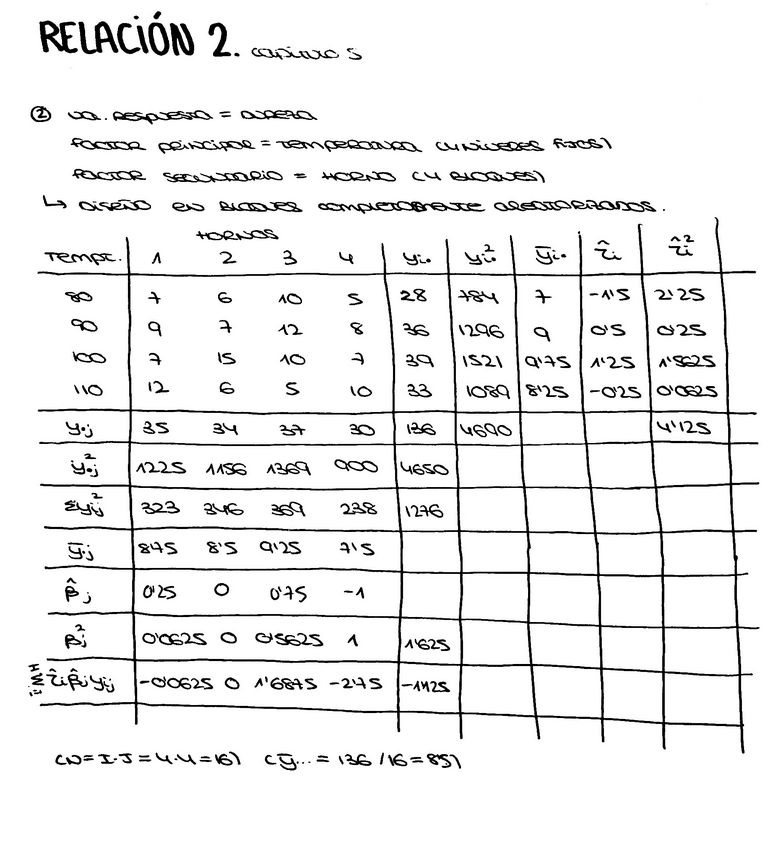 RELACIÓN 2. capítulo 5
② Va. RESPUESTA = DUREZA
FACTOR PRINCIPAL = TEMPERATURA (4 NIVELES FIJOS)
FACTOR SECUNDARIO = HORNO (4 BLOQUES)
↳ DISEÑO EN BLOQUES COMPLETAMENTE ALEATORIZADOS.
HORNOS
TEMPT. 1 2 3 4 yi. yi.² ȳi. τ̂i τ̂i²
80 7 6 10 5 28 784 7 -1'5 2'25
90 9 7 12 8 36 1296 9 0'5 0'25
100 7 15 10 7 39 1521 9'75 1'25 1'5625
110 12 6 5 10 33 1089 8'25 -0'25 0'0625
y.j 35 34 37 30 136 4690 4'125
y.j² 1225 1156 1369 900 4650
Σyij² 323 346 369 238 1276
ȳ.j 8'75 8'5 9'25 7'5
β̂j 0'25 0 0'75 -1
βj² 0'0625 0 0'5625 1 1'625
Σ τ̂i β̂j yij -0'0625 0 1'6875 -2'75 -1'125
(N = I·J = 4·4 = 16) (ȳ.. = 136/16 = 8'5)